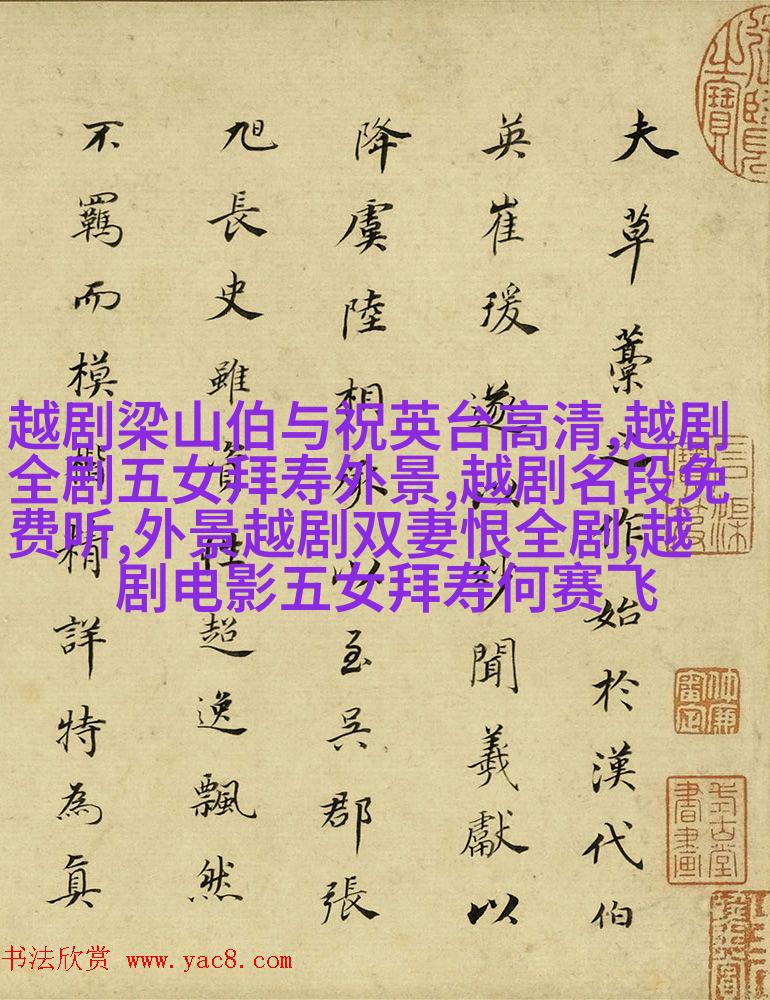 夫草藁之作始於漢代伯
英崔瑗遂以妙聞羲獻以
降虞陸相承以至吳郡張
旭長史雖資性超逸飄然
不羈而模楷精詳特為真
越剧梁山伯与祝英台高清,越剧
全剧五女拜寿外景,越剧名段免
费听,外景越剧双妻恨全剧,越
剧电影五女拜寿何赛飞
书法欣赏 www.yac8.com